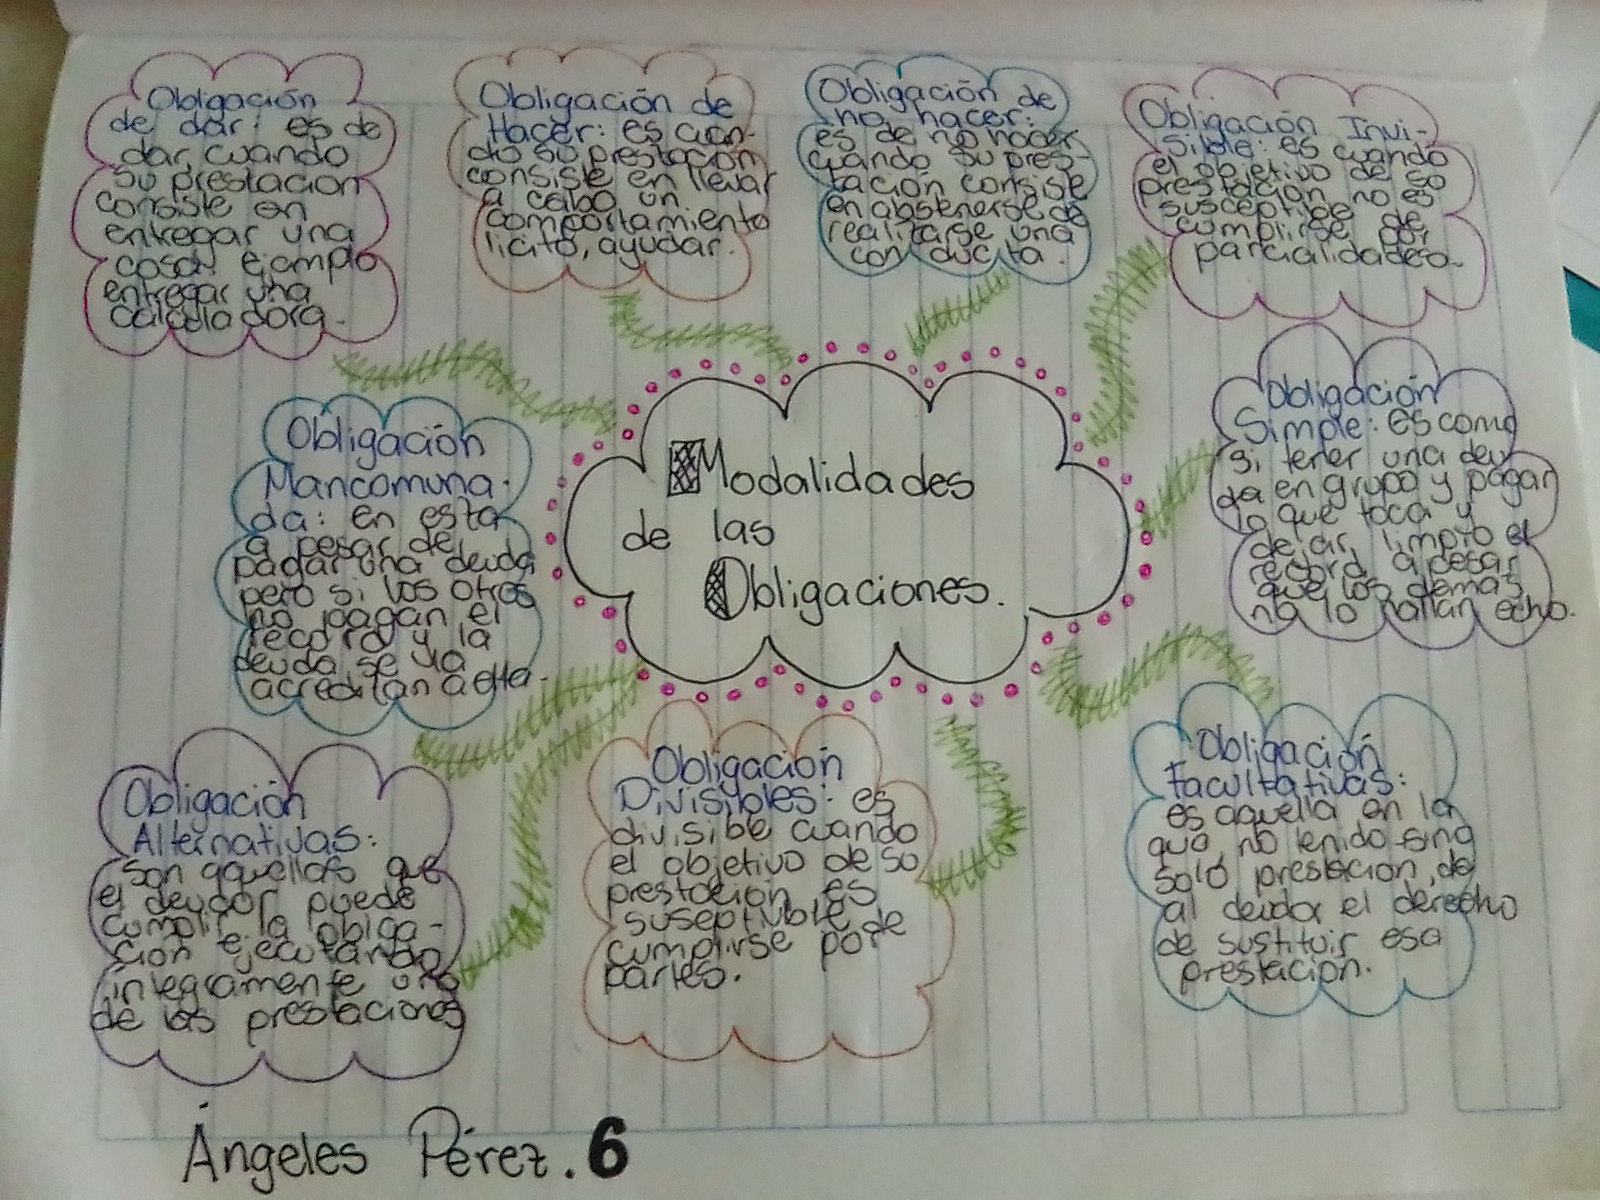 Obligación
de dar: es de
dar, cuando
su prestación
consiste en
entregar una
cosa. ejemplo
entregar una
calculadora.
Obligación de
Hacer: es cuan-
do su prestación
consiste en llevar
a cabo un
comportamiento
licito, ayudar.
Obligación de
no hacer:
es de no hacer
cuando su pres-
tación consiste
en abstenerse de
realizarse una
conducta.
Obligación Invi-
sible: es cuando
el objetivo de so
prestación no es
susceptible de
cumplirse por
parcialidades.
Obligación
Mancomuna-
da: en esta
a pesar de
pagar una deuda
pero si los otros
no pagan el
record y la
deuda se la
acreditan a ella.
Modalidades
de las
Obligaciones.
Obligación
Simple: es como
si tener una deu
da en grupo y pagar
lo que toca y
dejar limpio el
record apesar
que los demas
na lo hallan echo.
Obligación
Alternativas:
son aquellas que
el deudor puede
cumplir la obliga-
ción ejecutando
integramente una
de las prestaciones
Obligación
Divisibles: es
divisible cuando
el objetivo de su
prestación es
suseptivble de
cumplirse por
partes.
Obligación
Facultativas:
es aquella en la
que, no teniendo sino
solo prestación, da
al deudor el derecho
de sustituir esa
prestación.
Ángeles Pérez. 6